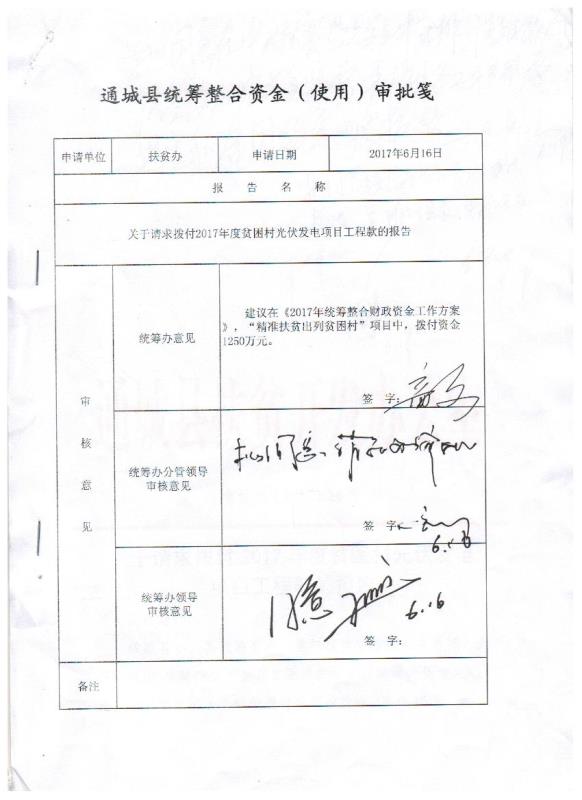 通城县统筹整合资金（使用）审批笺
申请单位 扶贫办 申请日期 2017年6月16日
报告名称
关于请求拨付2017年度贫困村光伏发电项目工程款的报告
审核意见
统筹办意见
建议在《2017年统筹整合财政资金工作方案
》，“精准扶贫出列贫困村”项目中，拨付资金
1250万元。
签 字：
统筹办分管领导
审核意见
拟同意
签 字：
6.16
统筹办领导
审核意见
同意
6.16
签 字：
备注